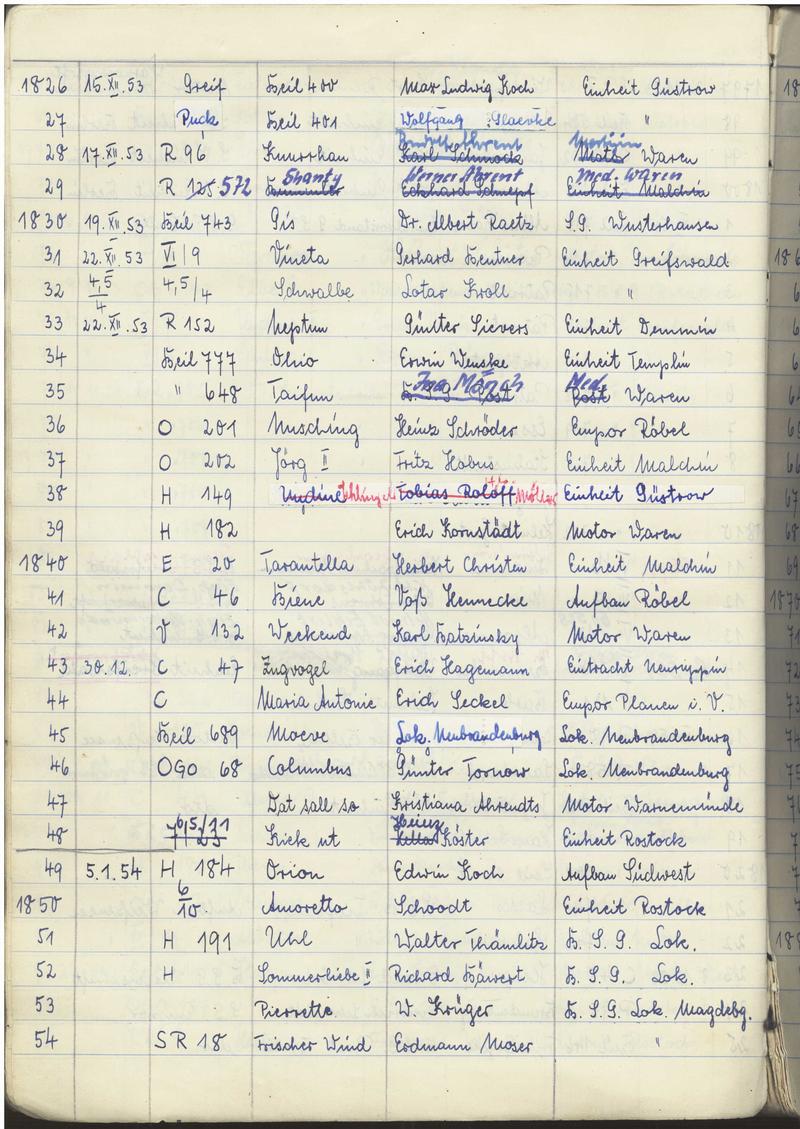 1826 15.XII.53 Greif Heil 400 Max Ludwig Koch Einheit Güstrow
27 Puck Heil 401 Wolfgang Glaevke "
28 17.XII.53 R 96 Knurrhan Ahrent Karl Schmock Motor Waren
29 R 125 572 Shanty Werner Ahrent Eckhard Schnepf med. Waren Einheit Malchin
1830 19.XII.53 Heil 743 Gis Dr. Albert Raetz S.G. Wusterhausen
31 22.XII.53 VI/9 Vineta Gerhard Hentner Einheit Greifswald
32 4,5/4 4,5/4 Schwalbe Lotar Kroll "
33 22.XII.53 R 152 Neptun Günter Sievers Einheit Demmin
34 Heil 777 Ohio Erwin Wenske Einheit Templin
35 " 648 Taifun Post Waren
36 O 201 Musching Heinz Schröder Empor Röbel
37 O 202 Jörg II Fritz Habus Einheit Malchin
38 H 149 Undine Tobias Roloff Möller Einheit Güstrow
39 H 182 Erich Kornstädt Motor Waren
1840 E 20 Tarantella Herbert Christen Einheit Malchin
41 C 46 Biene Voß Hennecke Aufbau Röbel
42 V 132 Weekend Karl Hatzinsky Motor Waren
43 30.12. C 47 Zugvogel Erich Hagemann Eintracht Neuruppin
44 C Maria Antonie Erich Seckel Empor Plauen i. V.
45 Heil 689 Moeve Lok. Neubrandenburg Lok. Neubrandenburg
46 OGO 68 Columbus Günter Tornow Lok. Neubrandenburg
47 Dat sall so Kristiana Ahrendts Motor Warnemünde
48 Kiek ut Heinz Köster Einheit Rostock
49 5.1.54 H 184 Orion Edwin Koch Aufbau Südwest
1850 6/10. Amoretto Schoodt Einheit Rostock
51 H 191 Uhl Walter Thämlitz H. S. G. Lok.
52 H Sommerliebe II Richard Häwert H. S. G. Lok.
53 Pierrette W. Krüger H. S. G. Lok. Magdebg.
54 SR 18 Frischer Wind Erdmann Moser "